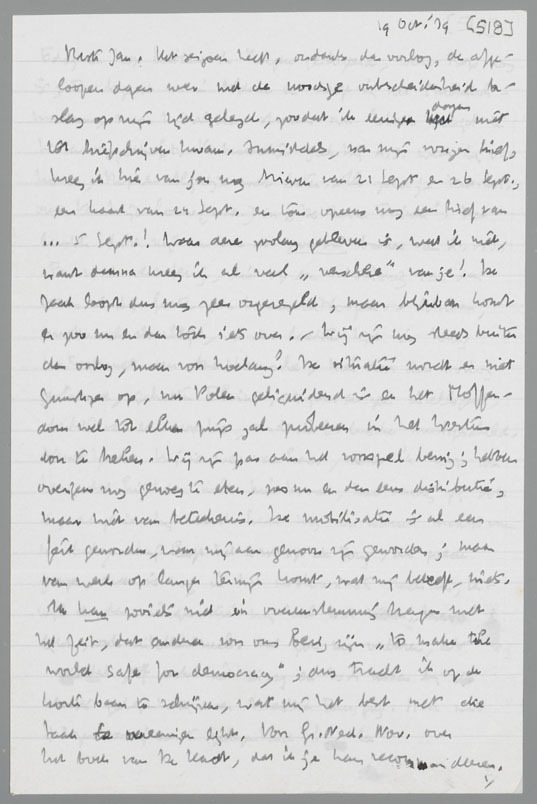 19 Oct. '39 [518]
Beste Jan. Het seizoen heeft, ondanks de oorlog, de afge-
loopen dagen weer met de noodige onbescheidenheid be-
slag op mijn tijd gelegd, zoodat ik eenige dagen niet
tot briefschrijven kwam. Inmiddels, na mijn vorigen brief,
kreeg ik hier van jou nog brieven van 21 Sept. en 26 Sept.,
een kaart van 24 Sept. en toen opeens nog een brief van
... 5 Sept.! Waar deze zoolang gebleven is, weet ik niet,
want daarna kreeg ik al veel „versche" van je! De
zaak loopt dus nog zeer ongeregeld, maar blijkbaar komt
er zoo nu en dan toch iets over. – Wij zijn nog steeds buiten
den oorlog, maar voor hoelang? De situatie wordt er niet
gunstiger op, nu Polen geliquideerd is en het Moffen-
dom wel tot elken prijs zal probeeren in het Westen
door te breken. Wij zijn pas aan het voorspel bezig; hebben
overigens nog genoeg te eten, zoo nu en dan eens distributie,
maar niet van beteekenis. De mobilisatie is al een
feit geworden, waar wij aan gewoon zijn geworden; maar
van werk op langen termijn komt, wat mij betreft, niets.
Ik kan zooiets niet in overeenstemming brengen met
het feit, dat anderen voor ons bezig zijn „to make the
world safe for democracy"; dus tracht ik op de
korte baan te schrijven, wat mij het best met die
taak te vereenigen lijkt. Voor Gr. Ned. Nov. over
het boek van De Kadt, dat ik je kan recommandeeren.